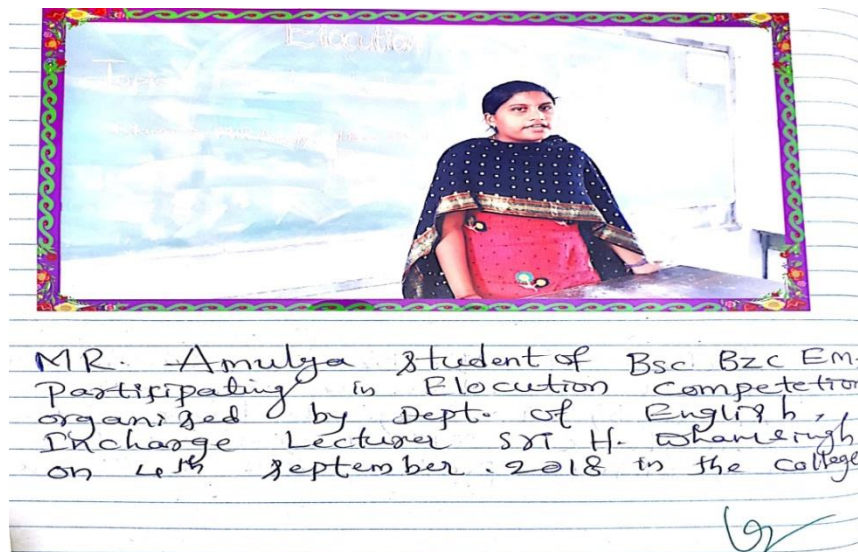 Elocution
Topic
MR. Amulya student of Bsc Bzc Em.
Partisipating in Elocution Competetion
organised by Dept. of English,
Incharge Lecturer Sri H.
on 4th September. 2018 in the College